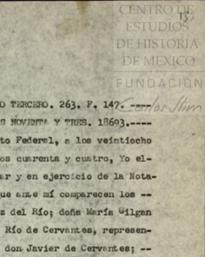 CENTRO DE
ESTUDIOS
DE HISTORIA
DE MEXICO
FUNDACIÓN
Carlos Slim
O TERCERO. 263. F. 147. ----
S NOVENTA Y TRES. 18693.----
to Federal, a los veintiocho
os cuarenta y cuatro, Yo el-
ar y en ejercicio de la Nota-
que ante mí comparecen los --
z del Río; doña María Gilgan
Río de Cervantes, represen-
don Javier de Cervantes; --